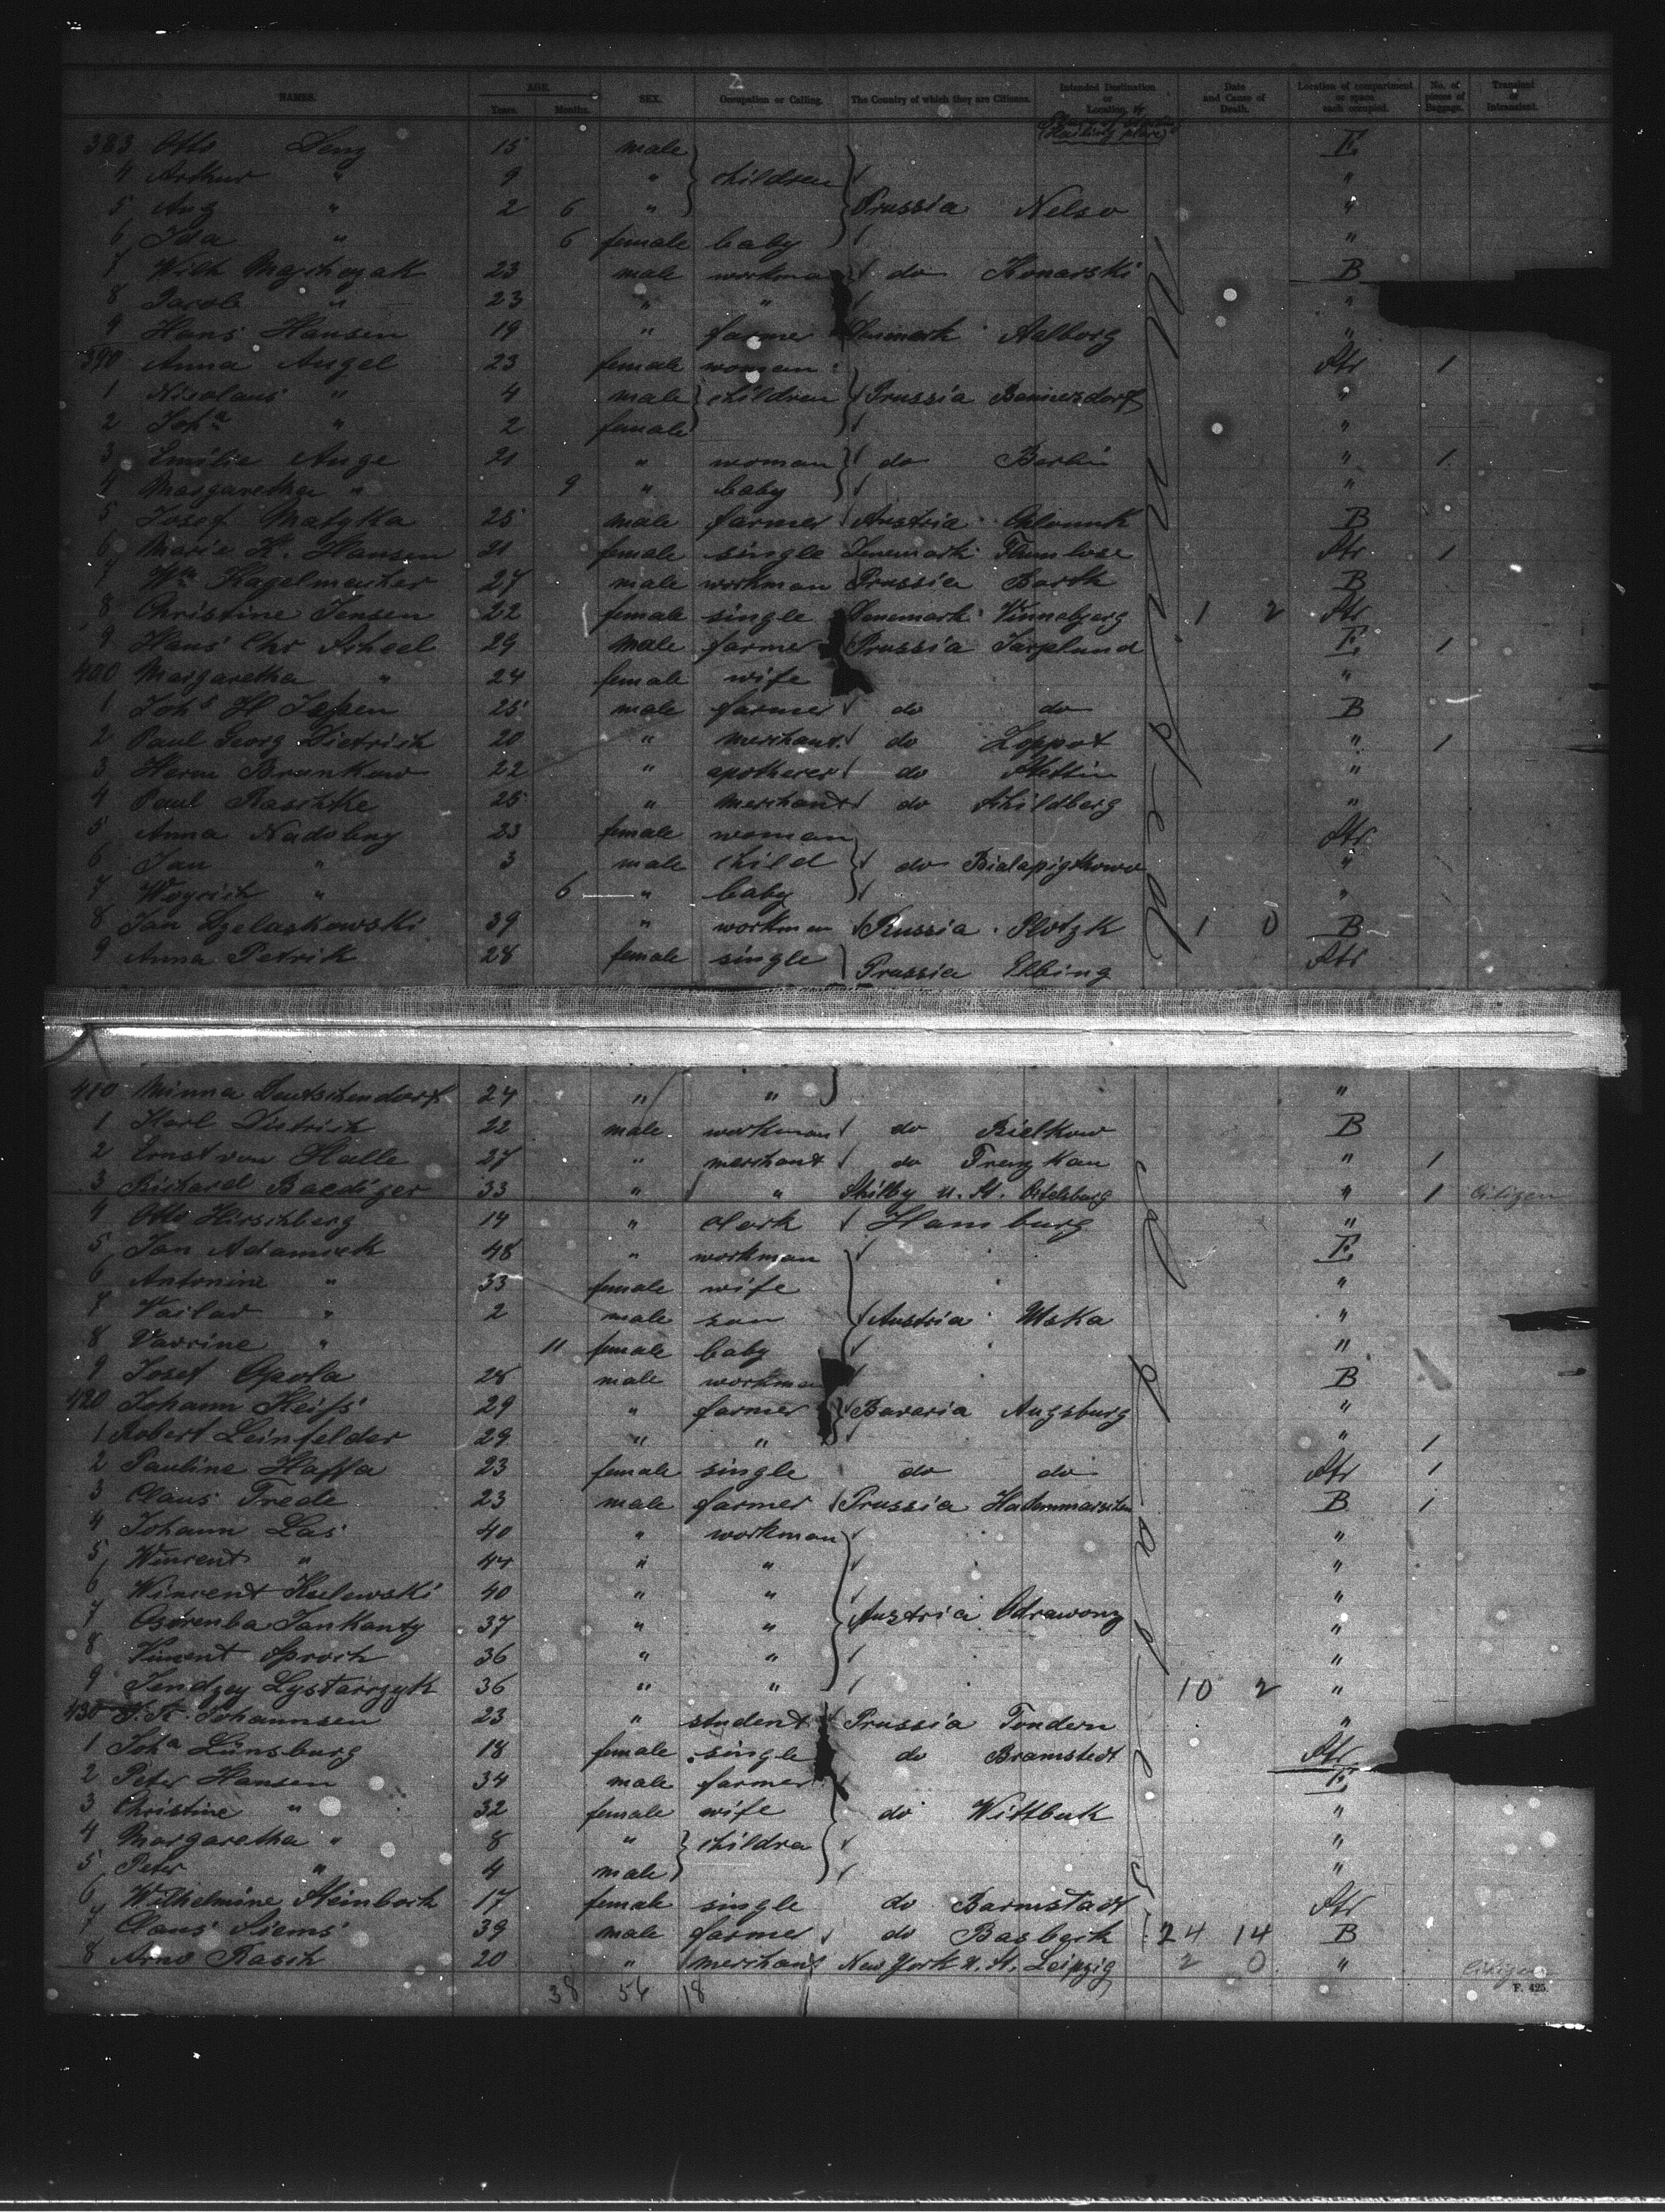 NAMES. AGE. Years. Months. SEX. Occupation or Calling. The Country of which they are Citizens. Intended Destination or Location. Date and Cause of Death. Location of compartment or space each occupied. No. of pieces of Baggage. Transient or Intransient.
383 Otto Lenz 15 male E
4 Arthur " 9 " children "
5 Aug " 2 6 " Prussia Nelso "
6 Ida " 6 female baby "
7 Wilh Majchczak 23 male workman do Konarski B
8 Jacob " 23 " " "
9 Hans Hansen 19 " farmer Danmark Aalborg "
390 Anna Angel 23 female woman Str 1
1 Nicolaus " 4 male children Prussia "
2 Joha " 2 female "
3 Emilie Ange 21 " woman do Berlin " 1
4 Margaretha " 9 " baby "
5 Josef Matyka 25 male farmer Austria B
6 Marie K. Hansen 21 female single Denemark Str 1
7 Wm Hagelmacher 27 male workman Prussia Barth B
8 Christine Jensen 22 female single Denemark Vinnebjerg 1 2 Str
9 Hans Chr Scheel 29 male farmer Prussia Jarplund E 1
400 Margaretha " 24 female wife "
1 Johs H Jepsen 25 male farmer do do B
2 Paul Georg Dietrich 20 " merchant do Zoppot " 1
3 Herm Brunkow 22 " do Stettin "
4 Paul Raschke 25 " merchant do Schildberg "
5 Anna Nadolny 23 female woman Str
6 Jan " 3 male child do "
7 " 6 " baby "
8 Jan Dzelaskowski 39 " workman Russia Plotzk 1 0 B
9 Anna Petrik 28 female single Prussia Elbing Str
410 Minna Deutschendorf 24 " " "
1 Karl Dietrich 22 male workman do Bielkow B
2 Ernst von Halle 27 " merchant do " 1
3 Richard Baediger 33 " " U. St. " 1 Citizen
4 Otto Hirschberg 14 " clerk Hamburg "
5 Jan Adamiek 48 " workman E
6 Antonine " 33 female wife "
7 " 2 male son Austria "
8 " 11 female baby "
9 Josef Opola 28 male workman B
420 Johann Heiss 29 " farmer Bavaria Augsburg "
1 Robert Leinfelder 29 " " " 1
2 Pauline Haffa 23 female single do do Str 1
3 Claus Trede 23 male farmer Prussia B 1
4 Johann Las 40 " workman "
5 Wincent " 44 " " "
6 Wincent Kulewski 40 " " "
7 37 " " Austria Odrawonz "
8 Vincent Sproch 36 " " "
9 36 " " 10 2 "
430 Johannsen 23 " student Prussia Tondern "
1 Joha Lünsburg 18 female single do Bramstedt Str
2 Peter Hansen 34 male farmer E
3 Christine " 32 female wife do Wittbek "
4 Margaretha " 8 " children "
5 Peter " 4 male "
6 Wilhelmine Steinbock 17 female single do Barmstadt Str
7 Claus Siems 39 male farmer do Basbeck 24 14 B
8 Arno Rasch 20 " merchant New York U. St. Leipzig 2 0 " Citizen
38 54 18
F. 425.